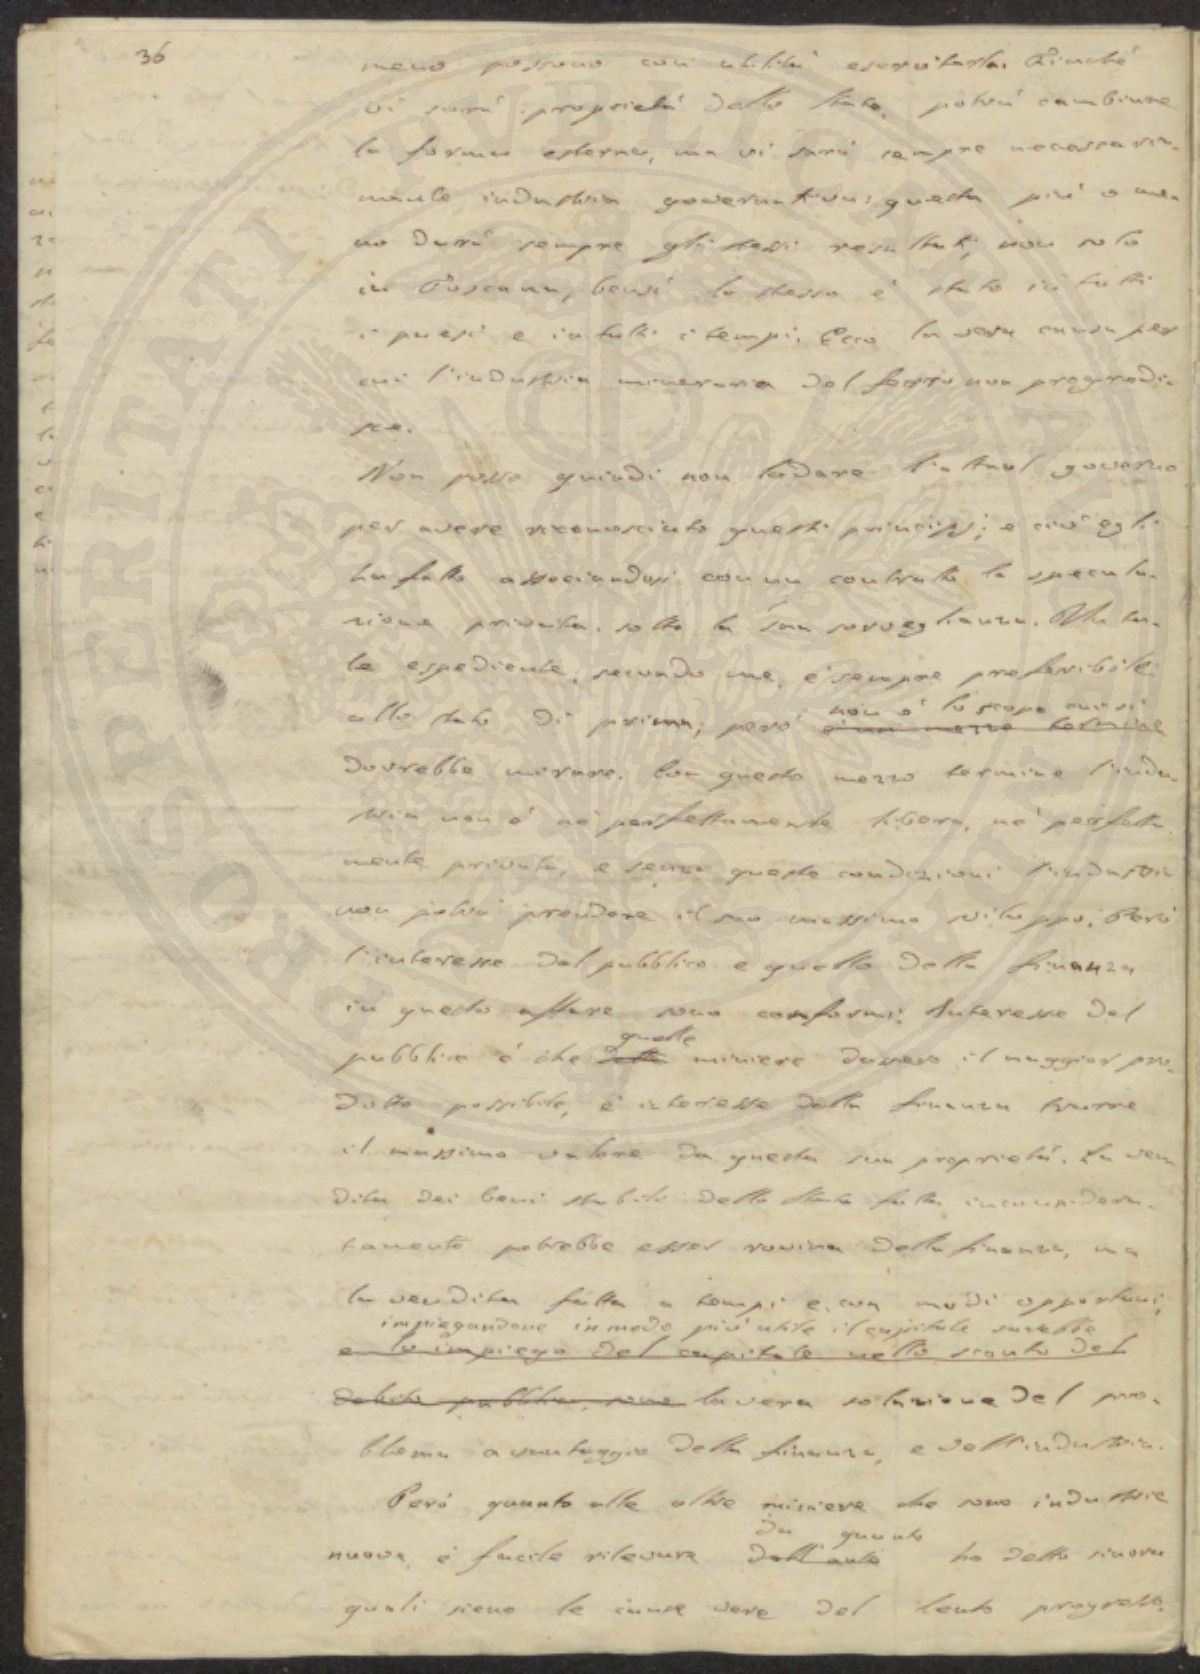 36
meno possono con utilità esercitarla. Finché
vi sarà proprietà dello Stato, potrà cambiare
la forma esterna, ma vi sarà sempre necessaria-
mente industria governativa; questa più o me-
no darà sempre gli stessi resultati, non solo
in Toscana, bensì lo stesso è stato in tutti
i paesi e in tutti i tempi. Ecco la vera causa per
cui l'industria mineraria del ferro non progredi-
sce.
Non posso quindi non lodare l'attual governo
per avere riconosciuto questi principj; e ciò egli
ha fatto associandosi con un contratto la specula-
zione privata, sotto la sua sorveglianza. Un ta-
le espediente, secondo me, è sempre preferibile
allo stato di prima; però
non è lo scopo cui si
è un mezzo termine
dovrebbe mirare. Con questo mezzo termine l'indu-
stria non è né perfettamente libera, né perfetta-
mente privata, e senza queste condizioni l'industria
non potrà prendere il suo massimo sviluppo. Però
l'interesse del pubblico e quello della finanza
in questo affare sono conformi. Interesse del
quelle
pubblico è che dette miniere dassero il maggior pro-
dotto possibile, è interesse della finanza trarre
il massimo valore da questa sua proprietà. La ven
dita dei beni stabili dello Stato fatta inconsidera-
tamente potrebbe esser rovina della finanza, ma
la vendita fatta a tempi e con modi opportuni,
impiegandone in modo più utile il capitale sarebbe
e lo impiego del capitale nello sconto del
debito pubblico, sono la vera soluzione del pro-
blema a vantaggio della finanza, e dell'industria.
Però quanto alle altre miniere che sono industrie
da quanto
nuove, è facile rilevare dall'anto ho detto sinora
quali sieno le cause vere del lento progresso,
PROSPERITATI PVBLICAE AVGENDAE